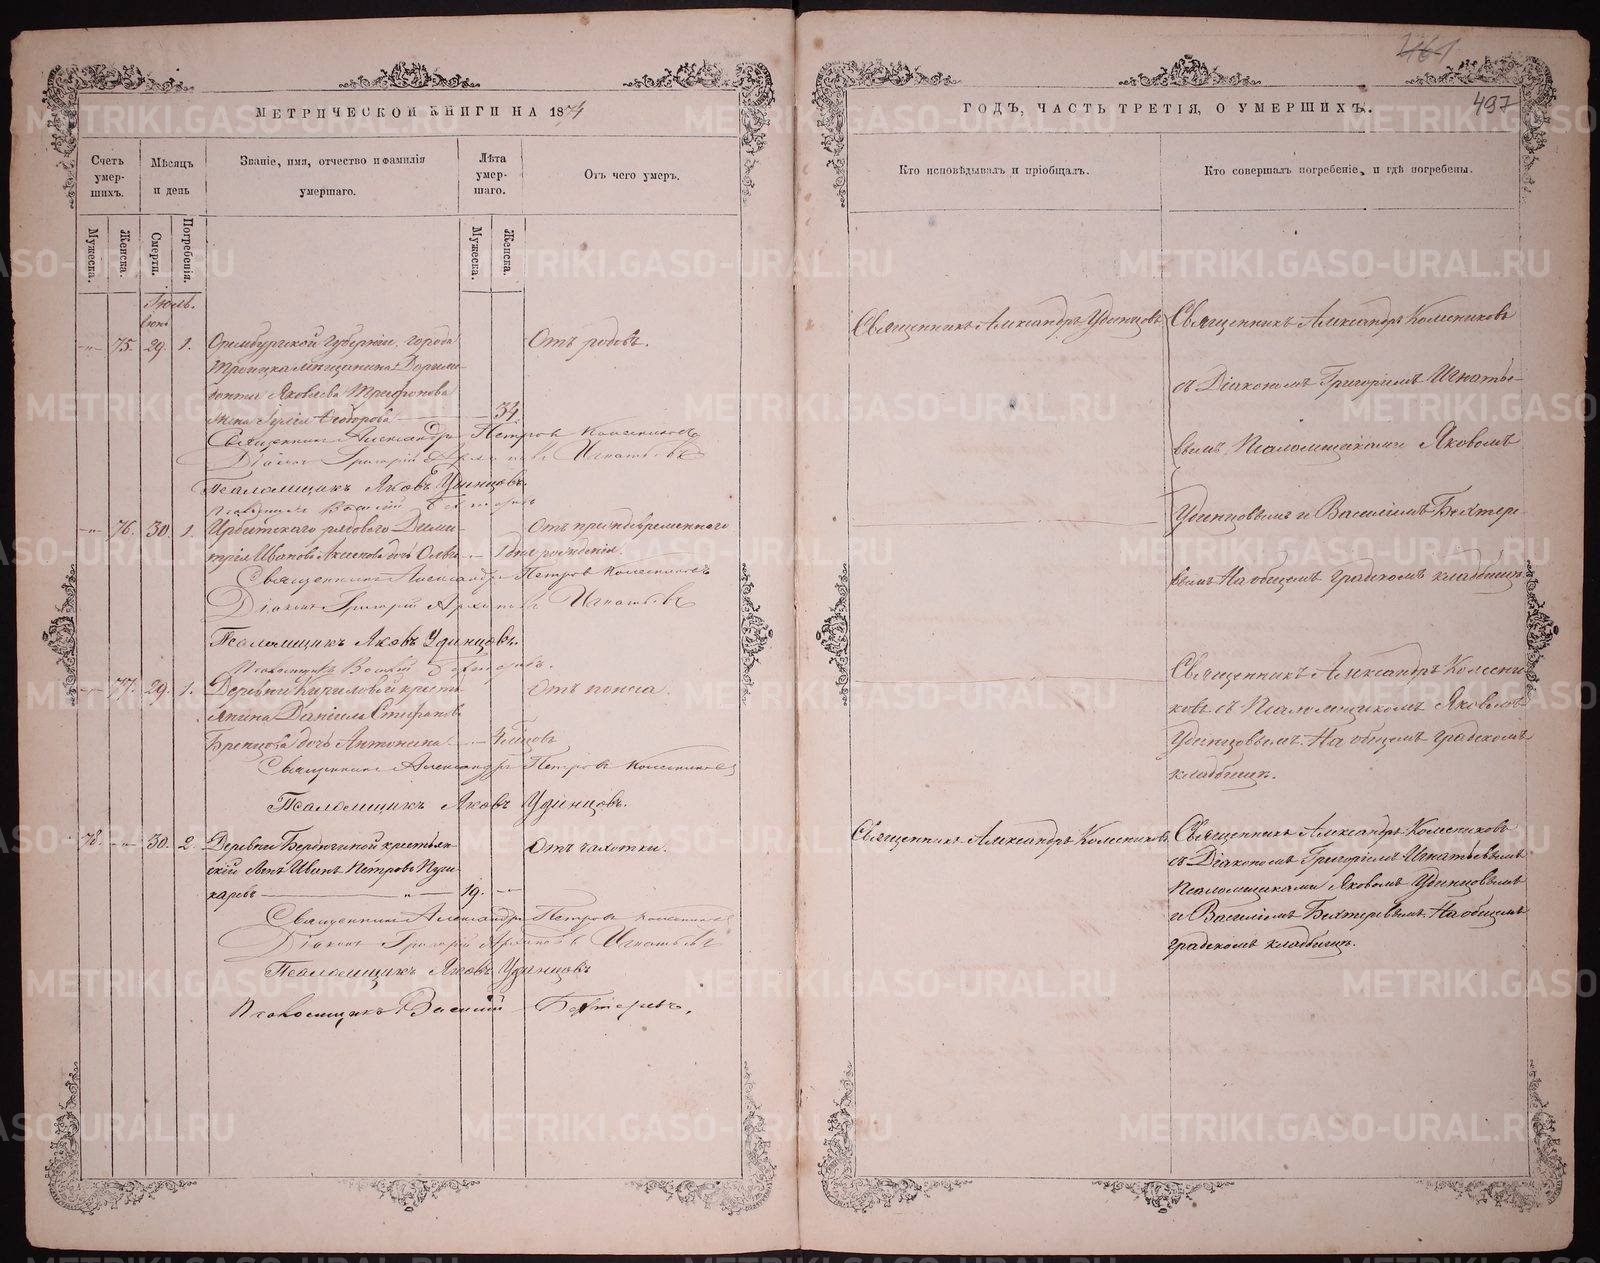 461
МЕТРИЧЕСКОЙ КНИГИ НА 1874
ГОДЪ, ЧАСТЬ ТРЕТІЯ, О УМЕРШИХЪ.
497
Счетъ умер-шихъ.
Мѣсяцъ и день
Званіе, имя, отчество и фамилія
умершаго.
Лѣта умер-шаго.
Отъ чего умеръ.
Кто исповѣдывалъ и пріобщалъ.
Кто совершалъ погребеніе, и гдѣ погребены.
Мужеска.
Женска.
Смерти.
Погребенія.
Мужеска.
Женска.
Іюль.
Іюнь
75. 29. 1. Оренбургской губерніи, города
Троицка мѣщанина
Яковлева Трифонова
жена Ѳеодорова 34
Отъ родовъ.
Священникъ Александръ Удинцовъ
Священникъ Александръ Колесниковъ
съ Діакономъ Григоріемъ Игнатье-
вымъ, Псаломщиками Яковомъ
Удинцовымъ и Василіемъ Бехтере-
вымъ На общемъ градскомъ кладбищѣ.
Священникъ Александръ Петровъ Колесниковъ
Діаконъ Григорій Архиповъ Игнатьевъ
Псаломщикъ Яковъ Удинцовъ.
Псаломщикъ Василій Бехтеревъ
76. 30. 1. Ирбитскаго рядового Дими-
трія Иванова Аксенова дочь Ольга 1 дня
Отъ преждевременнаго
рожденія.
Священникъ Александръ Петровъ Колесниковъ
Діаконъ Григорій Архиповъ Игнатьевъ
Псаломщикъ Яковъ Удинцовъ.
Псаломщикъ Василій Бехтеревъ.
77. 29. 1. Деревни Кириловой кресть-
янина Даніила Стефанова
дочь Антонина
Отъ поноса.
Священникъ Александръ Колесни-
ковъ съ Псаломщикомъ Яковомъ
Удинцовымъ. На общемъ градскомъ
кладбищѣ.
Священникъ Александръ Петровъ Колесниковъ
Псаломщикъ Яковъ Удинцовъ.
78. 30. 2. Деревни Бердюгиной крестьян-
скій сынъ Иванъ Петровъ
19.
Отъ чахотки.
Священникъ Александръ Колесниковъ
Священникъ Александръ Колесниковъ
съ Діакономъ Григоріемъ Игнатьевымъ
Псаломщиками Яковомъ Удинцовымъ
и Василіемъ Бехтеревымъ. На общемъ
градскомъ кладбищѣ.
Священникъ Александръ Петровъ Колесниковъ
Діаконъ Григорій Архиповъ Игнатьевъ
Псаломщикъ Яковъ Удинцовъ
Псаломщикъ Василій Бехтеревъ.
METRIKI.GASO-URAL.RU